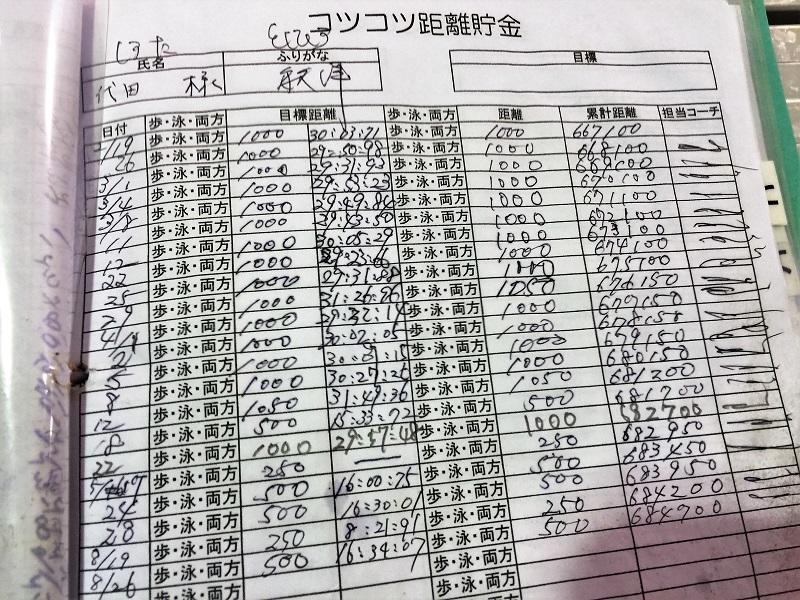 コツコツ距離貯金
しろた
氏名 ふりがな 目標
代田 様
日付 歩・泳・両方 目標距離 歩・泳・両方 距離 累計距離 担当コーチ
歩・泳・両方 1000 30:03:71 歩・泳・両方 1000 667100
26 歩・泳・両方 1000 29:50:98 歩・泳・両方 1000 668100
3/1 歩・泳・両方 1000 29:31:93 歩・泳・両方 1000 669100
3/4 歩・泳・両方 1000 29:53:23 歩・泳・両方 1000 670100
3/8 歩・泳・両方 1000 29:49:84 歩・泳・両方 1000 671100
11 歩・泳・両方 1000 29:43:50 歩・泳・両方 1000 672100
12 歩・泳・両方 1000 30:05:29 歩・泳・両方 1000 673100
22 歩・泳・両方 1000 歩・泳・両方 1000 674100
25 歩・泳・両方 1000 29:31:88 歩・泳・両方 1000 675100
29 歩・泳・両方 1000 31:26:96 歩・泳・両方 1050 676150
4/1 歩・泳・両方 1000 29:22:14 歩・泳・両方 1000 677150
歩・泳・両方 1000 30:02:05 歩・泳・両方 1000 678150
5 歩・泳・両方 1000 歩・泳・両方 1000 679150
8 歩・泳・両方 1000 30:27:25 歩・泳・両方 1000 680150
12 歩・泳・両方 1050 31:49:36 歩・泳・両方 1050 681200
18 歩・泳・両方 500 15:33:72 歩・泳・両方 500 681700
22 歩・泳・両方 1000 29:57:48 歩・泳・両方 1000 682700
歩・泳・両方 250 歩・泳・両方 250 682950
24 歩・泳・両方 500 16:00:75 歩・泳・両方 500 683450
28 歩・泳・両方 500 16:30:01 歩・泳・両方 500 683950
8/19 歩・泳・両方 250 8:21:91 歩・泳・両方 250 684200
8/26 歩・泳・両方 500 16:34:07 歩・泳・両方 500 684700
歩・泳・両方